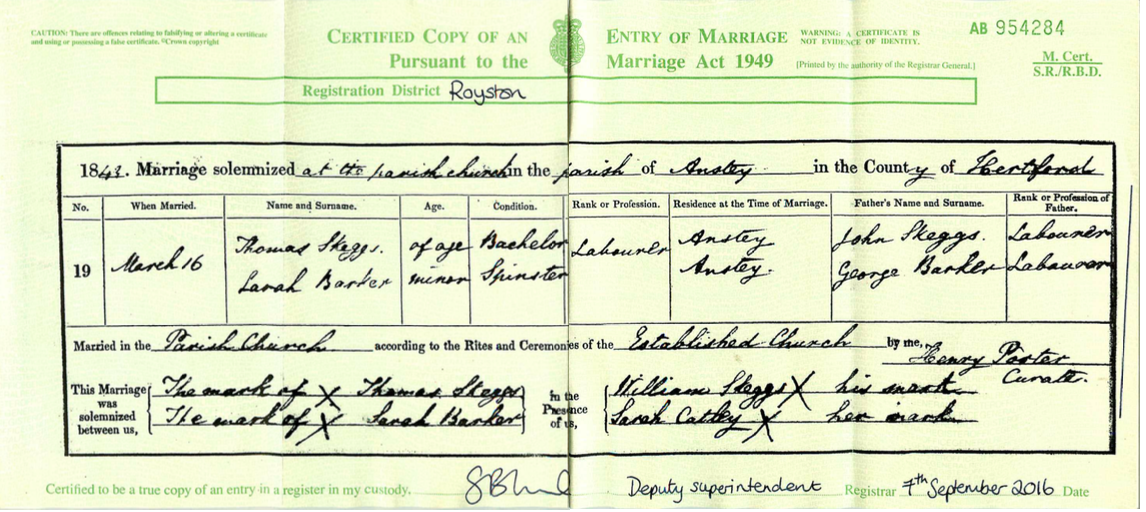 CAUTION: There are offences relating to falsifying or altering a certificate
and using or possessing a false certificate. ©Crown copyright
CERTIFIED COPY OF AN ENTRY OF MARRIAGE
Pursuant to the Marriage Act 1949
WARNING: A CERTIFICATE IS
NOT EVIDENCE OF IDENTITY.
[Printed by the authority of the Registrar General.]
AB 954284
M. Cert.
S.R./R.B.D.
Registration District Royston
1843. Marriage solemnized at the parish church in the parish of Anstey in the County of Hertford
No. When Married. Name and Surname. Age. Condition. Rank or Profession. Residence at the Time of Marriage. Father's Name and Surname. Rank or Profession of Father.
19 March 16 Thomas Skeggs. of age Bachelor Labourer Anstey John Skeggs. Labourer
Sarah Barker minor Spinster Anstey. George Barker Labourer
Married in the Parish Church according to the Rites and Ceremonies of the Established Church by me,
Henry Porter
Curate.
This Marriage was solemnized between us,
The mark of X Thomas Skeggs
The mark of X Sarah Barker
In the Presence of us,
William Skeggs X his mark
Sarah Catley X her mark
Certified to be a true copy of an entry in a register in my custody. Deputy superintendent Registrar 7th September 2016 Date